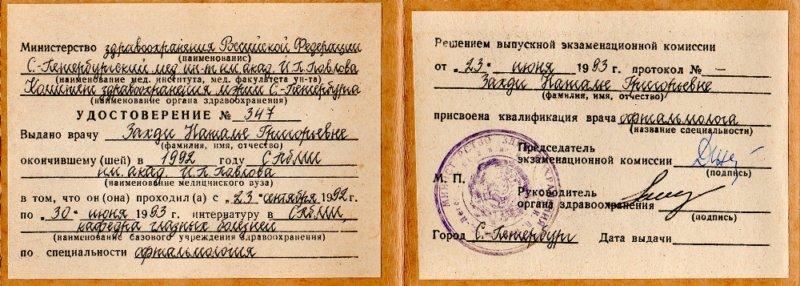 Министерство здравоохранения Российской Федерации
(наименование)
С.-Петербургский мед. ин-т им. акад. И.П. Павлова
(наименование мед. института, мед. факультета ун-та)
Комитет здравоохранения мэрии С.-Петербурга
(наименование органа здравоохранения)
УДОСТОВЕРЕНИЕ № 347
Выдано врачу Захди Наталье Григорьевне
(фамилия, имя, отчество)
окончившему (шей) в 1992 году СПбМИ
им. акад. И.П. Павлова
(наименование медицинского вуза)
в том, что он(она) проходил(а) с „23 сентября 1992 г.
по „30“ июня 1993 г. интернатуру в СПбМИ
кафедра глазных болезней
(наименование базового учреждения здравоохранения)
по специальности офтальмология
Решением выпускной экзаменационной комиссии
от „23“ июня 1993 г. протокол № —
Захди Наталье Григорьевне
(фамилия, имя, отчество)
присвоена квалификация врача офтальмолога
(название специальности)
Председатель
экзаменационной комиссии
(подпись)
М. П.
Руководитель
органа здравоохранения
(подпись)
Город С.-Петербург Дата выдачи